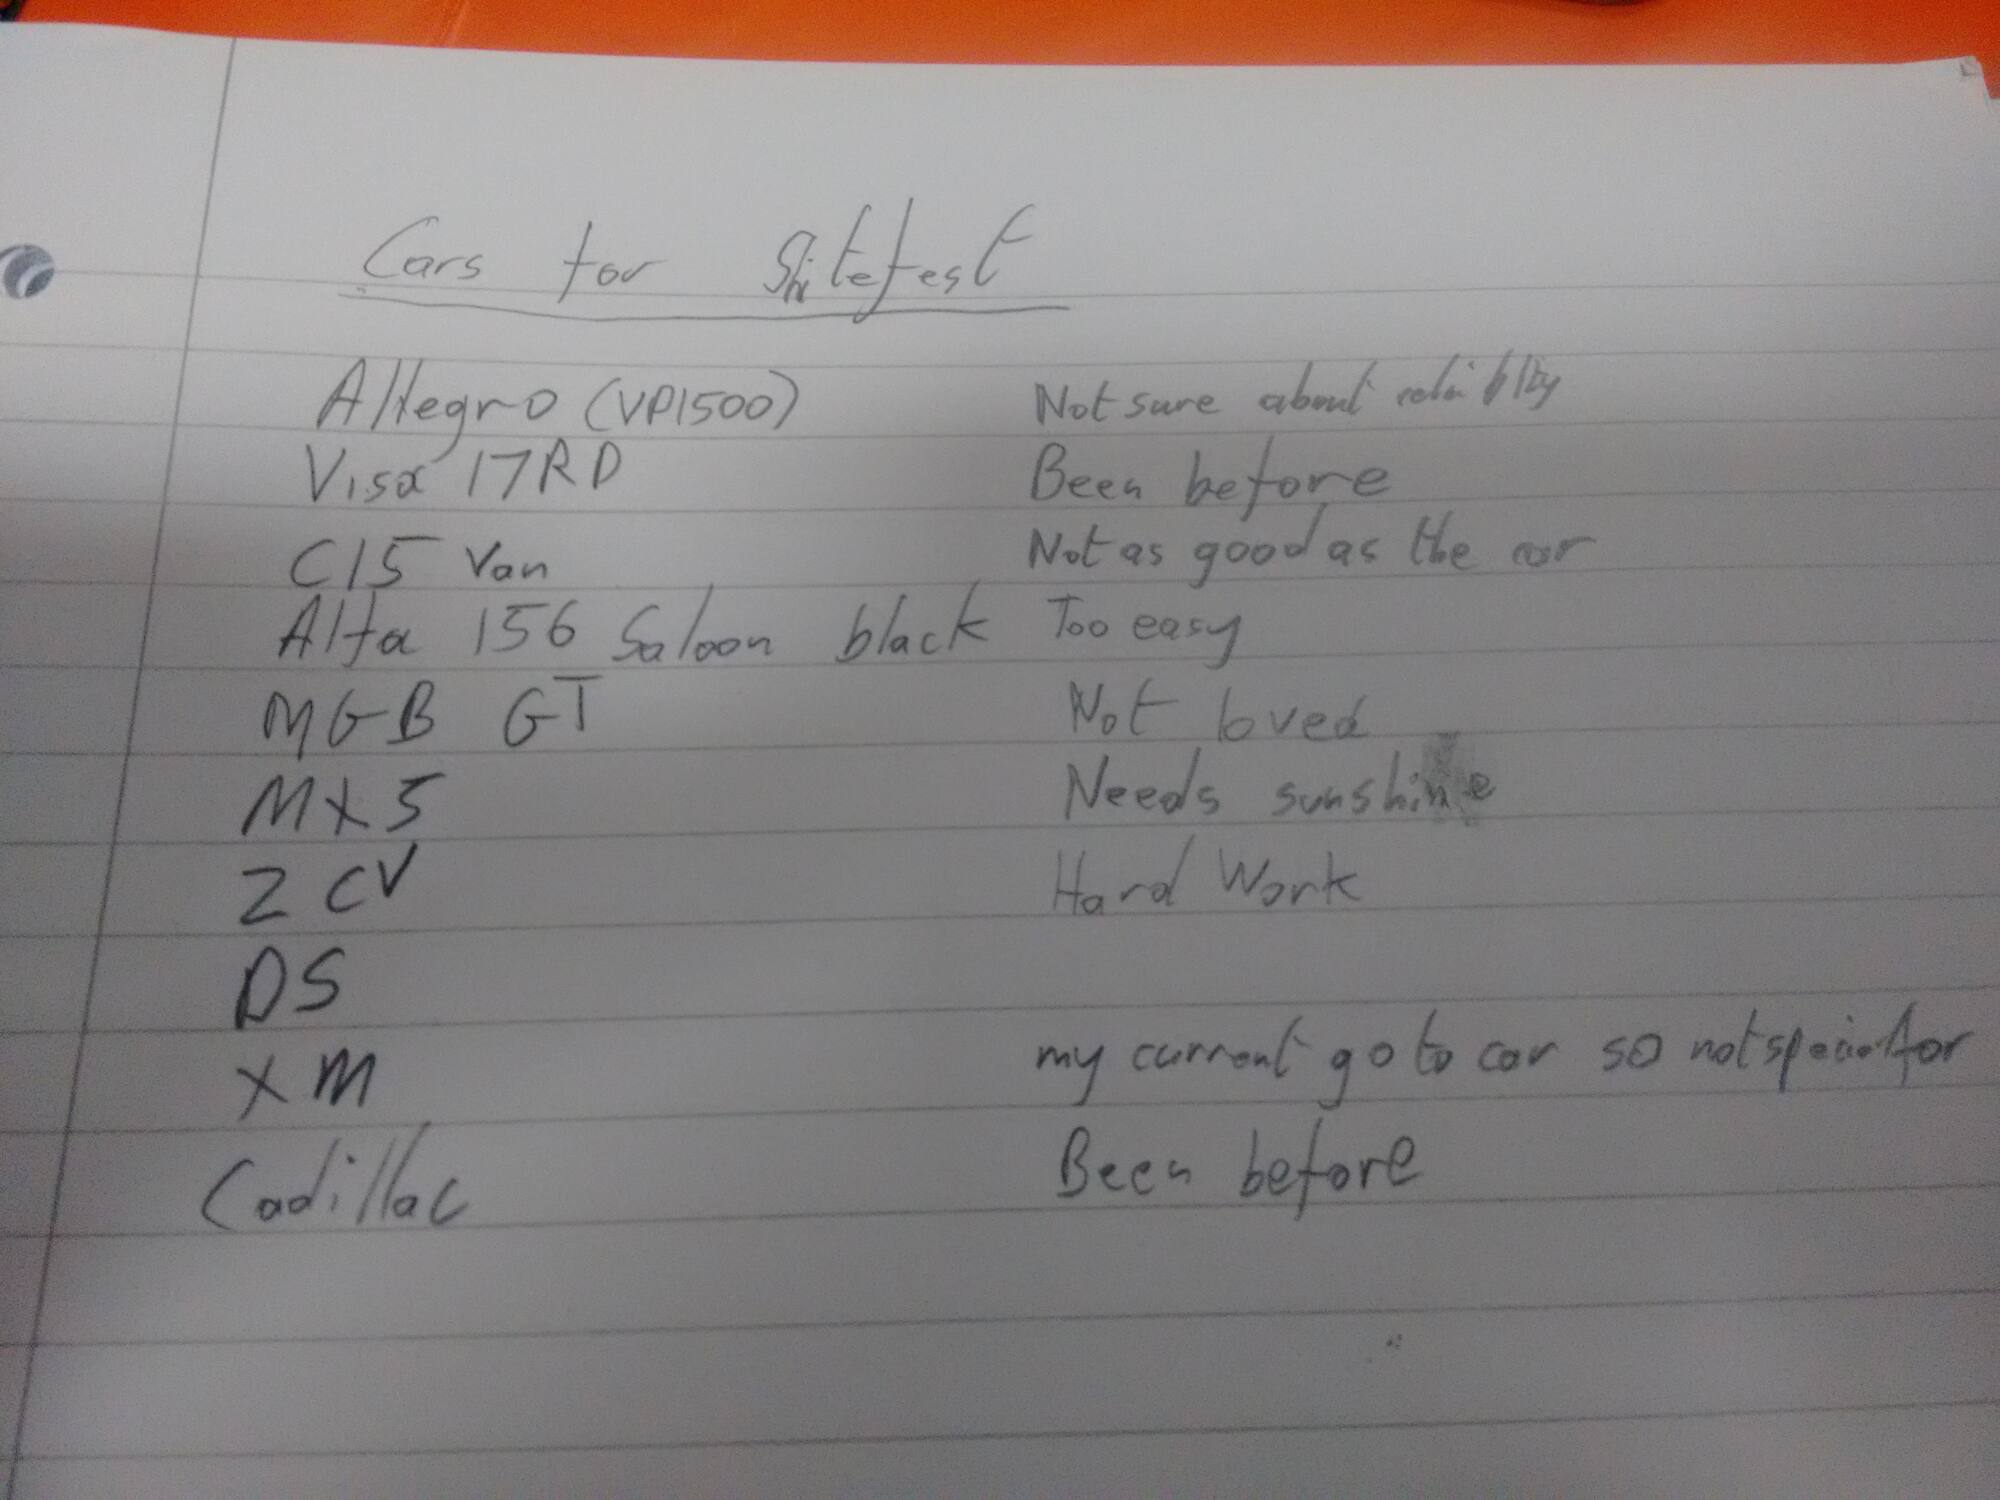 Cars for Shitefest
Allegro (VP1500) Not sure about
Visa 17RD Been before
C15 Van Not as good as the car
Alfa 156 Saloon black Too easy
MGB GT Not loved
MX5 Needs sunshine
2CV Hard Work
DS
XM my current go to car so not special for
Cadillac Been before